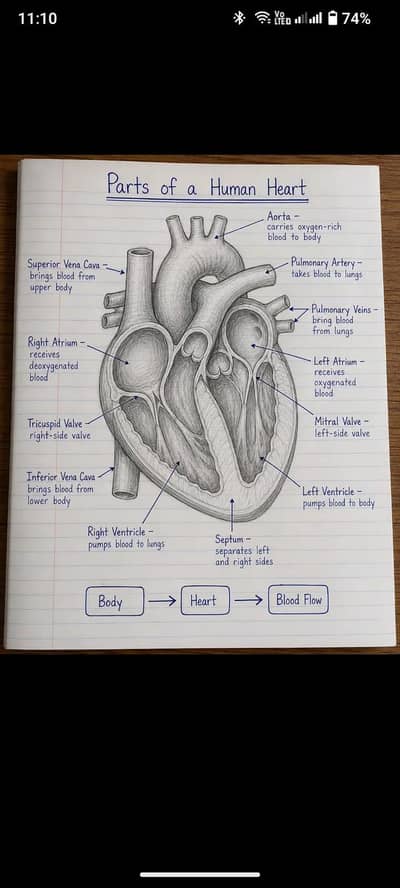 11:10
Vo
LTED
74%
Parts of a Human Heart
Aorta –
carries oxygen-rich
blood to body
Superior Vena Cava –
brings blood from
upper body
Pulmonary Artery –
takes blood to lungs
Pulmonary Veins –
bring blood
from lungs
Right Atrium –
receives
deoxygenated
blood
Left Atrium –
receives
oxygenated
blood
Tricuspid Valve –
right-side valve
Mitral Valve –
left-side valve
Inferior Vena Cava –
brings blood from
lower body
Left Ventricle –
pumps blood to body
Right Ventricle –
pumps blood to lungs
Septum –
separates left
and right sides
Body → Heart → Blood Flow